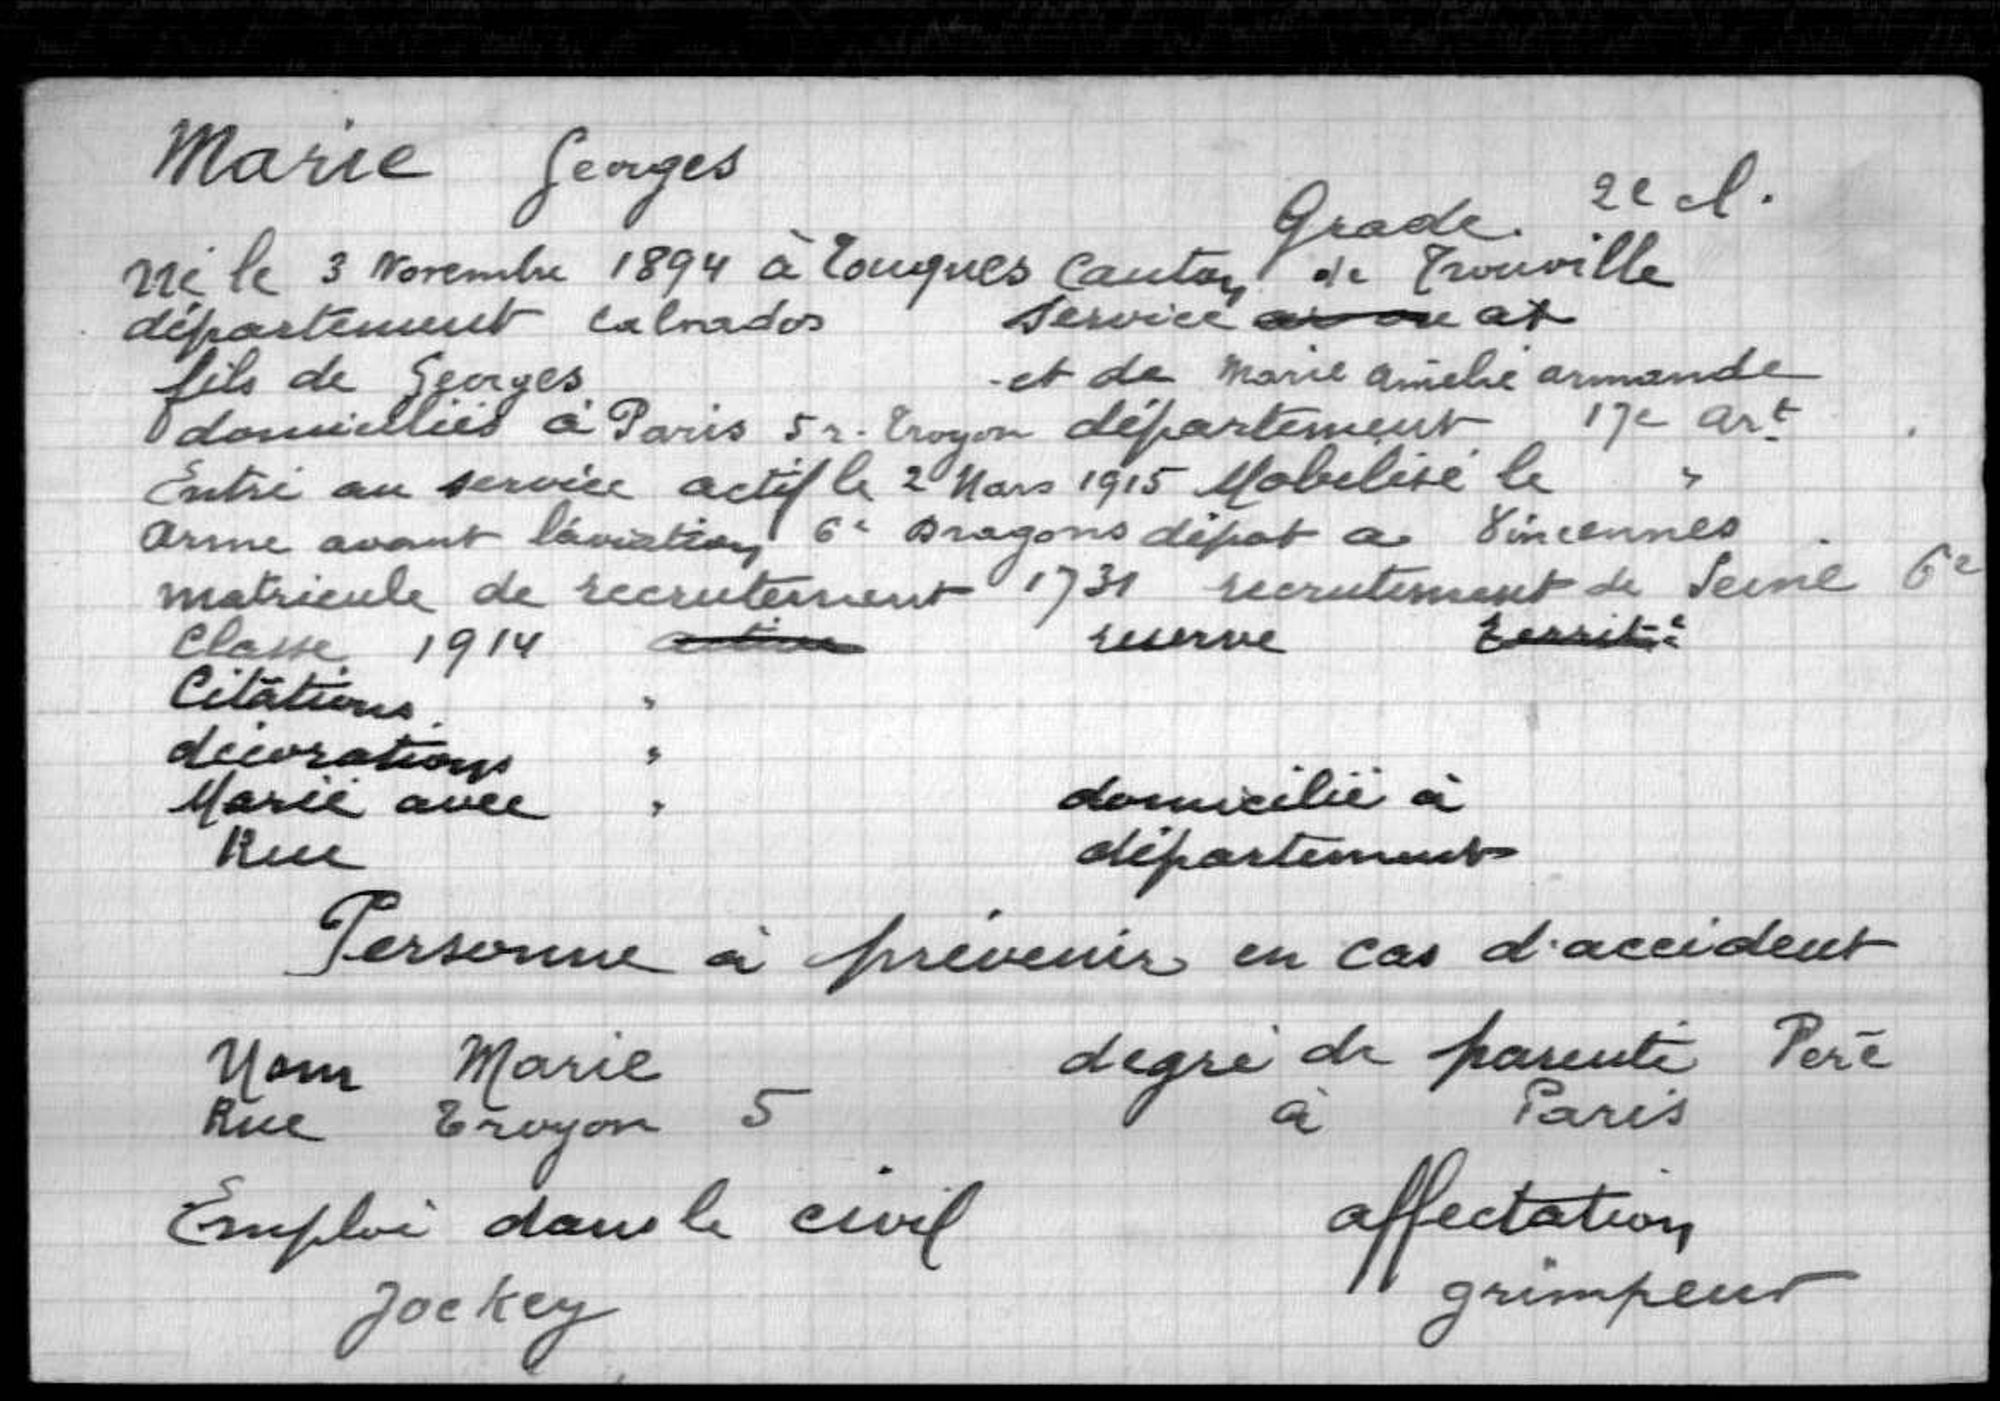 Marie Georges
Grade. 2e cl.
Né le 3 Novembre 1894 à Touques Canton de Trouville
département Calvados Service at
fils de Georges et de Marie Amélie Armande
domiciliés à Paris 5 r. Troyon département 17e Art
Entré au service actif le 2 Mars 1915 Mobilisé le "
Arme avant l'aviation 6e Dragons dépot a Vincennes
matricule de recrutement 1731 recrutement de Seine 6e
Classe 1914 active reserve Territ.e
Citations. "
décorations "
Marié avec " domicilié à
Rue département
Personne à prévenir en cas d'accident
Nom Marie degré de parenté Père
Rue Troyon 5 à Paris
Emploi dans le civil affectation
Jockey grimpeur